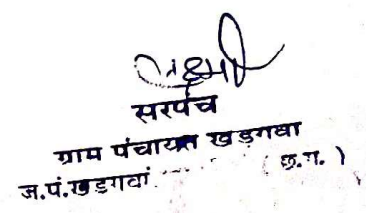 लक्ष्मी
सरपंच
ग्राम पंचायत खड़गवा
ज.पं.खड़गवां (छ.ग.)